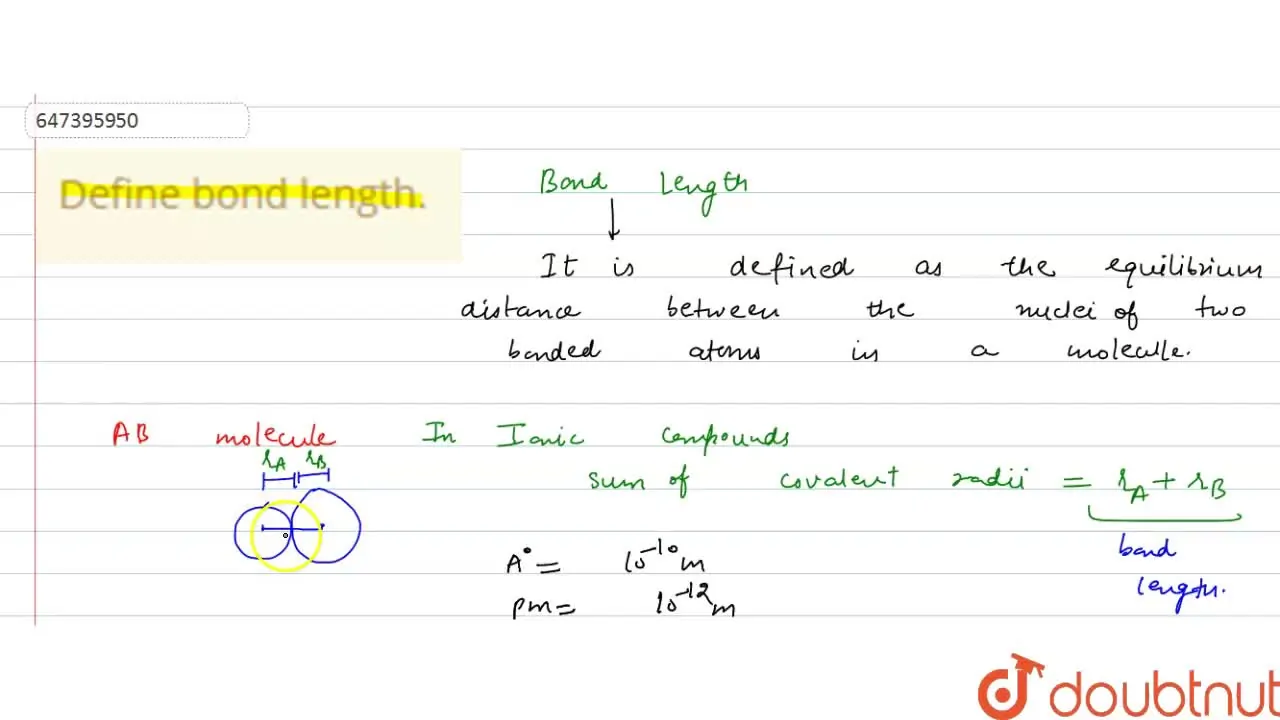 647395950
Define bond length.
Bond Length
It is defined as the equilibrium
distance between the nuclei of two
bonded atoms in a molecule.
AB molecule
rA rB
In Ionic compounds
sum of covalent radii = rA + rB
bond
length.
A° = 10⁻¹⁰ m
pm = 10⁻¹² m
doubtnut